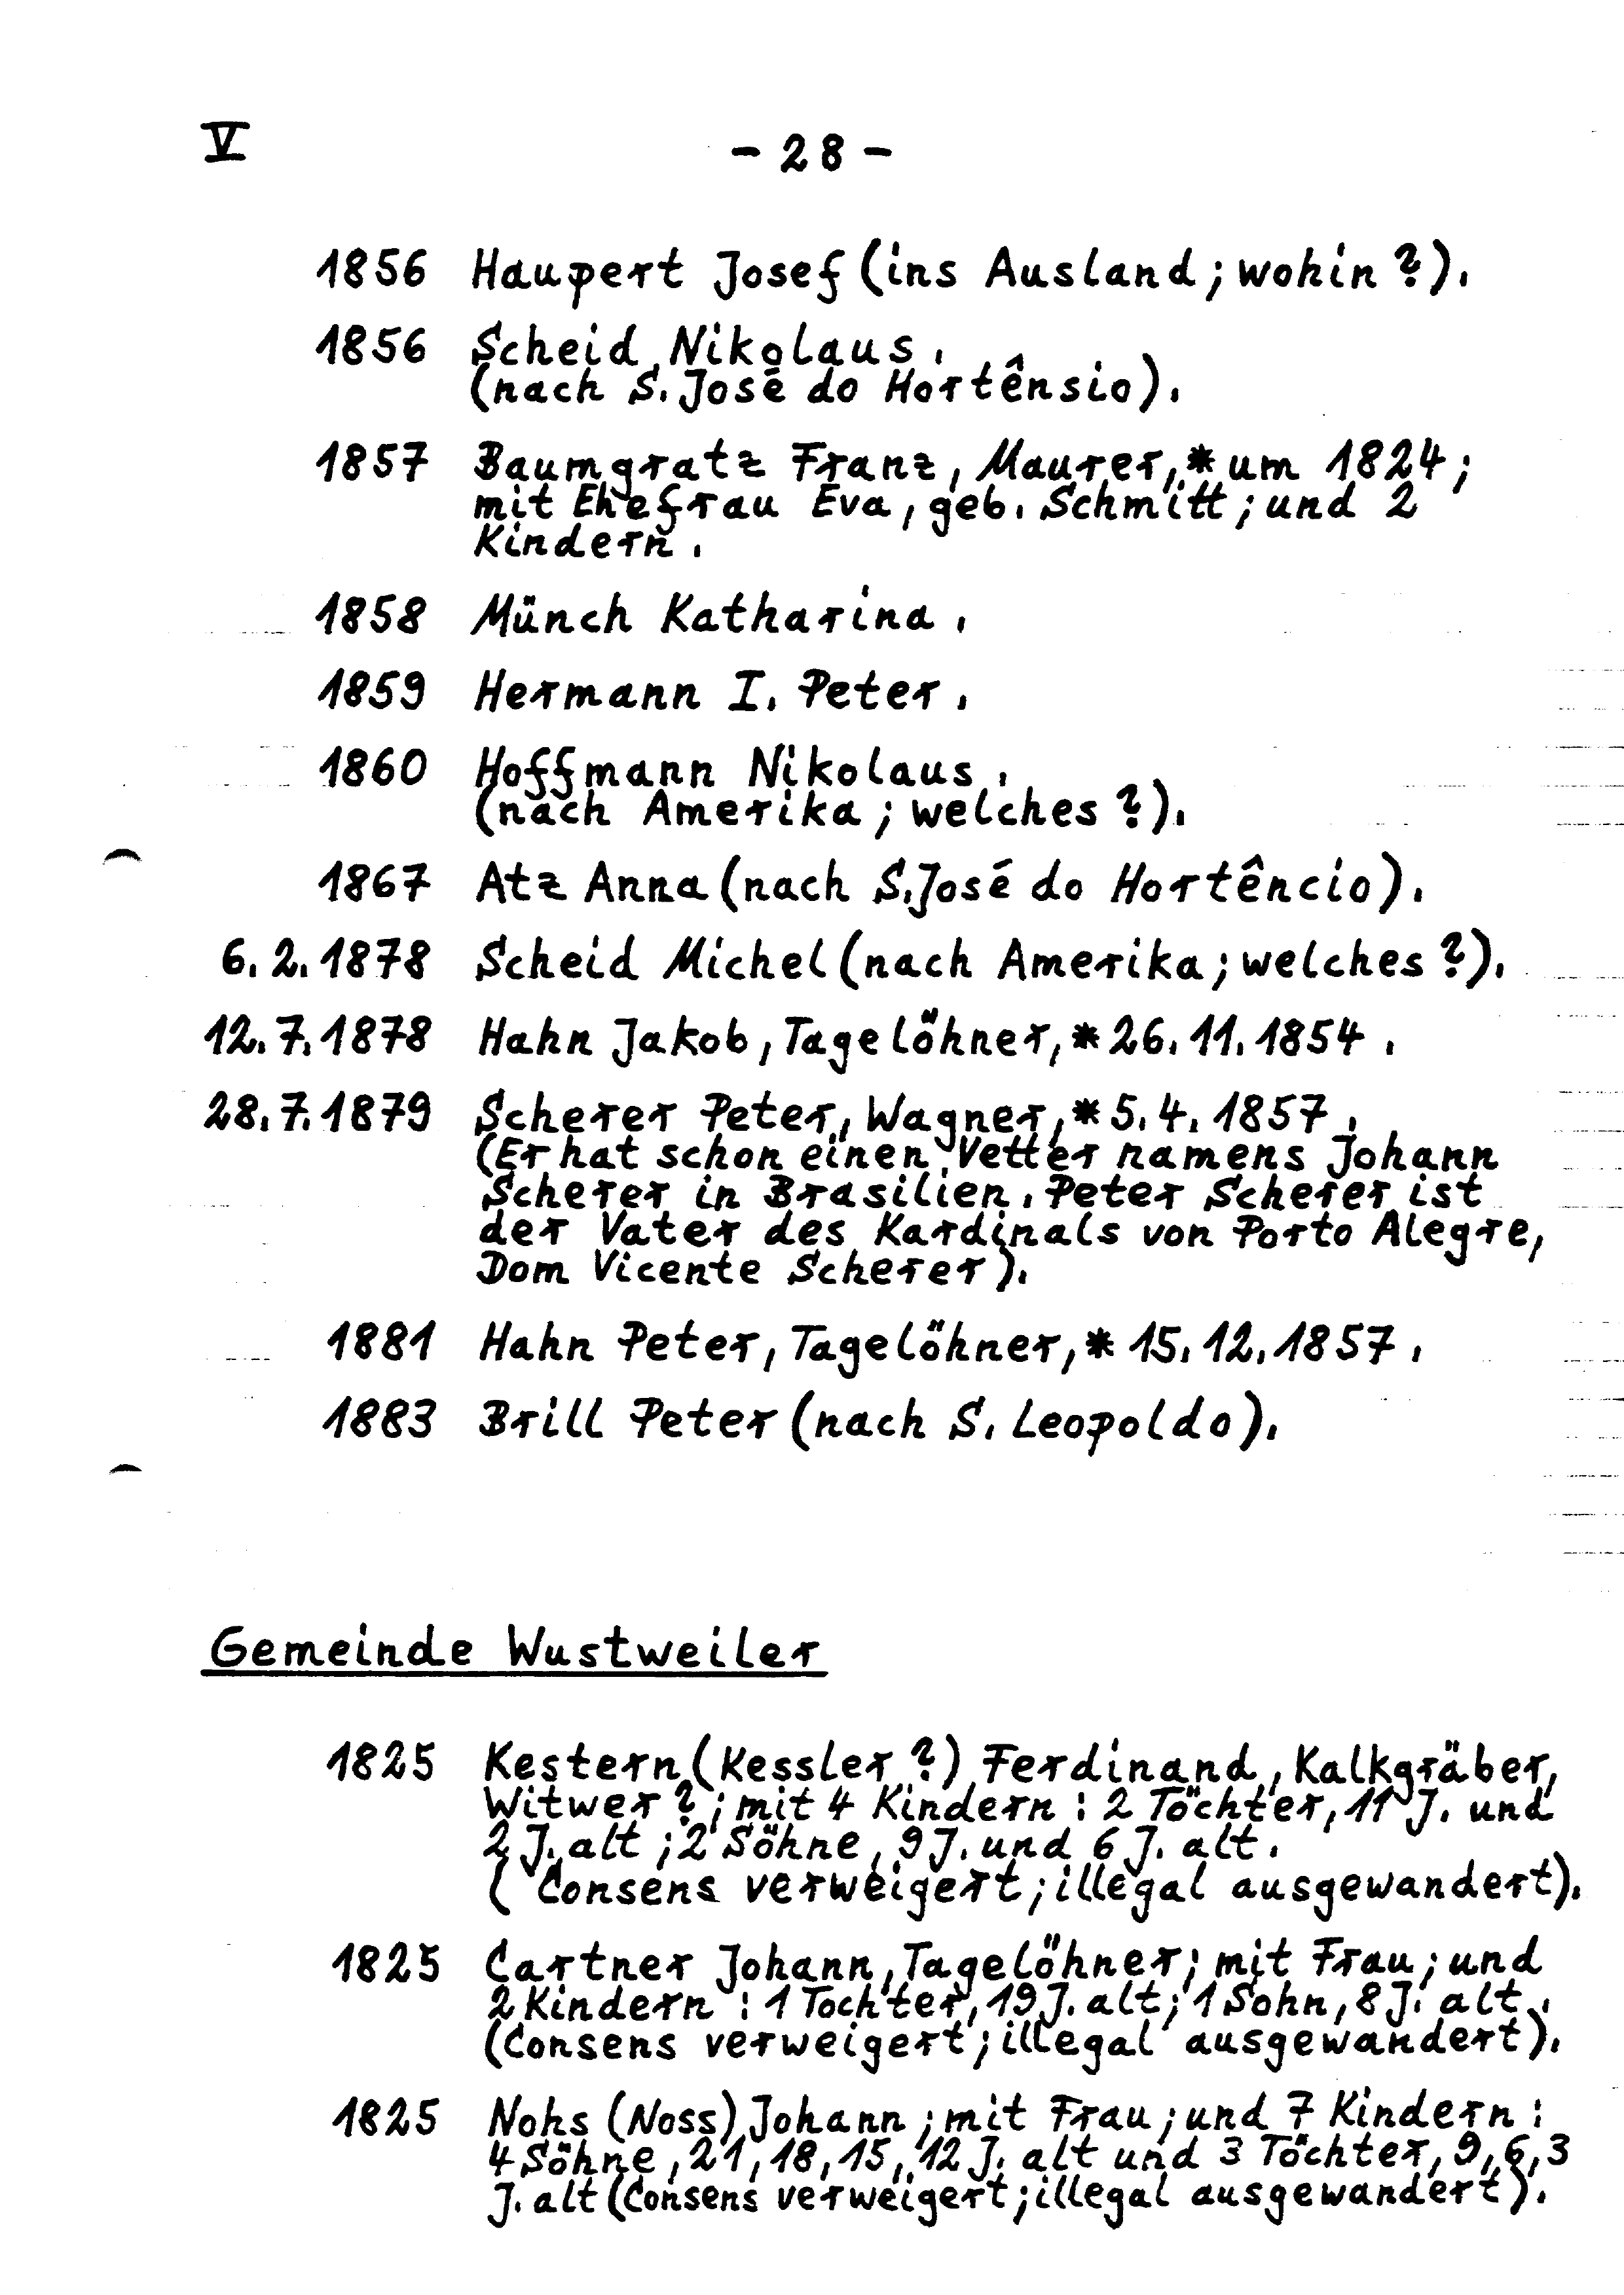 V - 28 -
1856 Haupert Josef (ins Ausland; wohin?).
1856 Scheid Nikolaus.
(nach S. José do Hortênsio).
1857 Baumgratz Franz, Maurer, * um 1824;
mit Ehefrau Eva, geb. Schmitt; und 2
Kindern.
1858 Münch Katharina.
1859 Hermann I. Peter.
1860 Hoffmann Nikolaus.
(nach Amerika; welches?).
1867 Atz Anna (nach S. José do Hortêncio).
6. 2. 1878 Scheid Michel (nach Amerika; welches?).
12. 7. 1878 Hahn Jakob, Tagelöhner, * 26. 11. 1854.
28. 7. 1879 Scherer Peter, Wagner, * 5. 4. 1857.
(Er hat schon einen Vetter namens Johann
Scherer in Brasilien. Peter Scherer ist
der Vater des Kardinals von Porto Alegre,
Dom Vicente Scherer).
1881 Hahn Peter, Tagelöhner, * 15. 12. 1857.
1883 Brill Peter (nach S. Leopoldo).
Gemeinde Wustweiler
1825 Kestern (Kessler?) Ferdinand, Kalkgräber,
Witwer?; mit 4 Kindern: 2 Töchter, 11 J. und
2 J. alt; 2 Söhne, 9 J. und 6 J. alt.
(Consens verweigert; illegal ausgewandert).
1825 Cartner Johann, Tagelöhner; mit Frau; und
2 Kindern: 1 Tochter, 19 J. alt; 1 Sohn, 8 J. alt.
(Consens verweigert; illegal ausgewandert).
1825 Nohs (Noss) Johann; mit Frau; und 7 Kindern:
4 Söhne, 21, 18, 15, 12 J. alt und 3 Töchter, 9, 6, 3
J. alt (Consens verweigert; illegal ausgewandert).